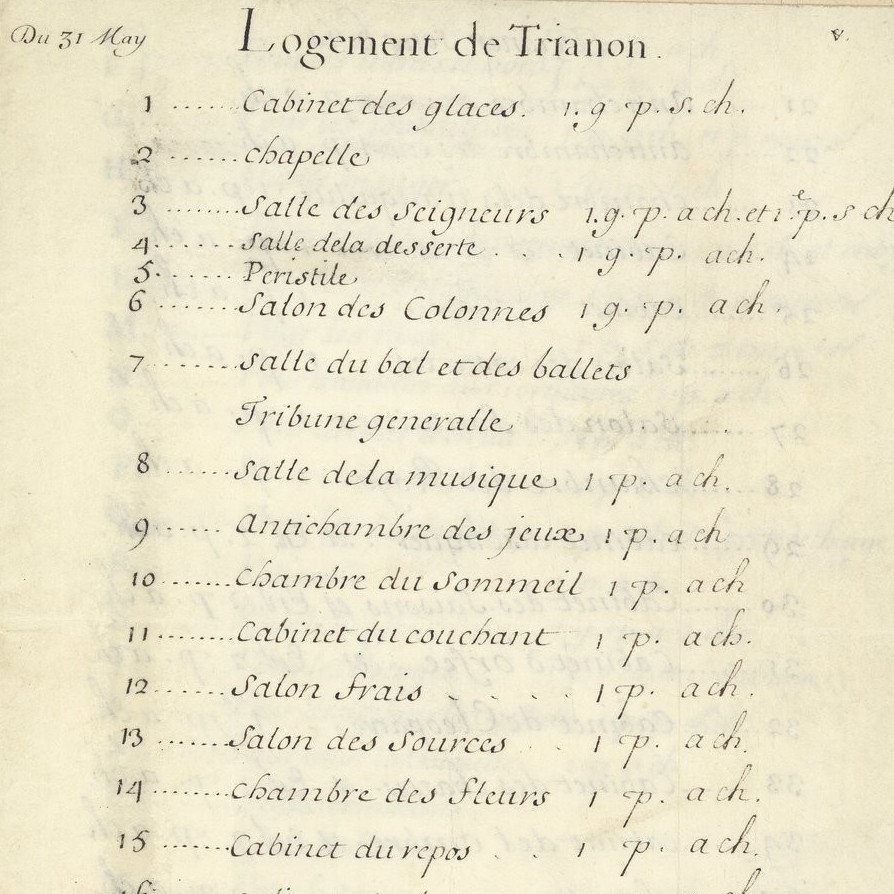 Du 31 May Logement de Trianon. v.
1 ....... Cabinet des glaces. 1. g p. s. ch.
2 ....... chapelle
3 ........ Salle des Seigneurs 1. g. p. a ch. et 1.e p. s ch
4 ........ Salle dela desserte . . . 1 g. p. a ch.
5 ....... Peristile
6 ....... Salon des Colonnes 1 g. p. a ch.
7 ........ Salle du bal et des ballets
Tribune generalle
8 ....... Salle dela musique 1 p. a ch.
9 ...... Antichambre des jeux 1 p. a ch
10 ....... Chambre du Sommeil 1 p. a ch
11 ........ Cabinet du couchant . 1 p. a ch.
12 ....... Salon frais . . . . 1 p. a ch.
13 ....... Salon des Sources . . 1 p. a ch.
14 ........ Chambre des fleurs 1 p. a ch.
15 ....... Cabinet du repos . . 1 p. a ch.